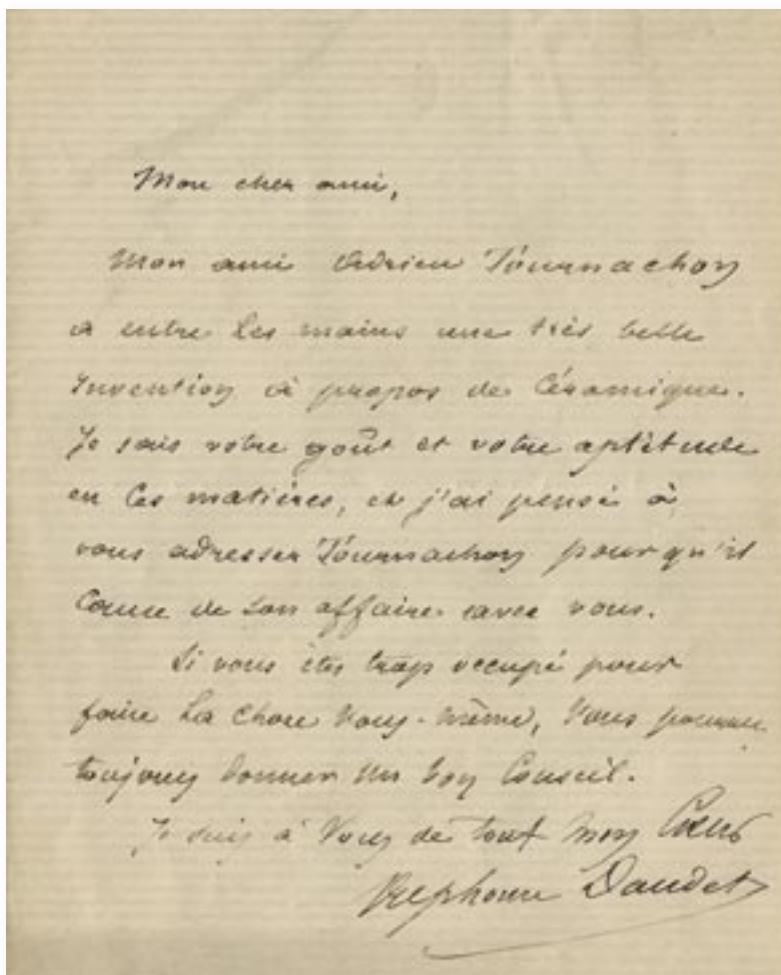 Mon cher ami,
Mon ami Adrien Tournachon
a entre les mains une très belle
invention à propos de Céramique.
Je sais votre goût et votre aptitude
en ces matières, et j'ai pensé à
vous adresser Tournachon pour qu'il
cause de son affaire avec vous.
Si vous êtes trop occupé pour
faire la chose vous-même, vous pourrez
toujours donner un bon Conseil.
Je suis à vous de tout mon Coeur
Alphonse Daudet